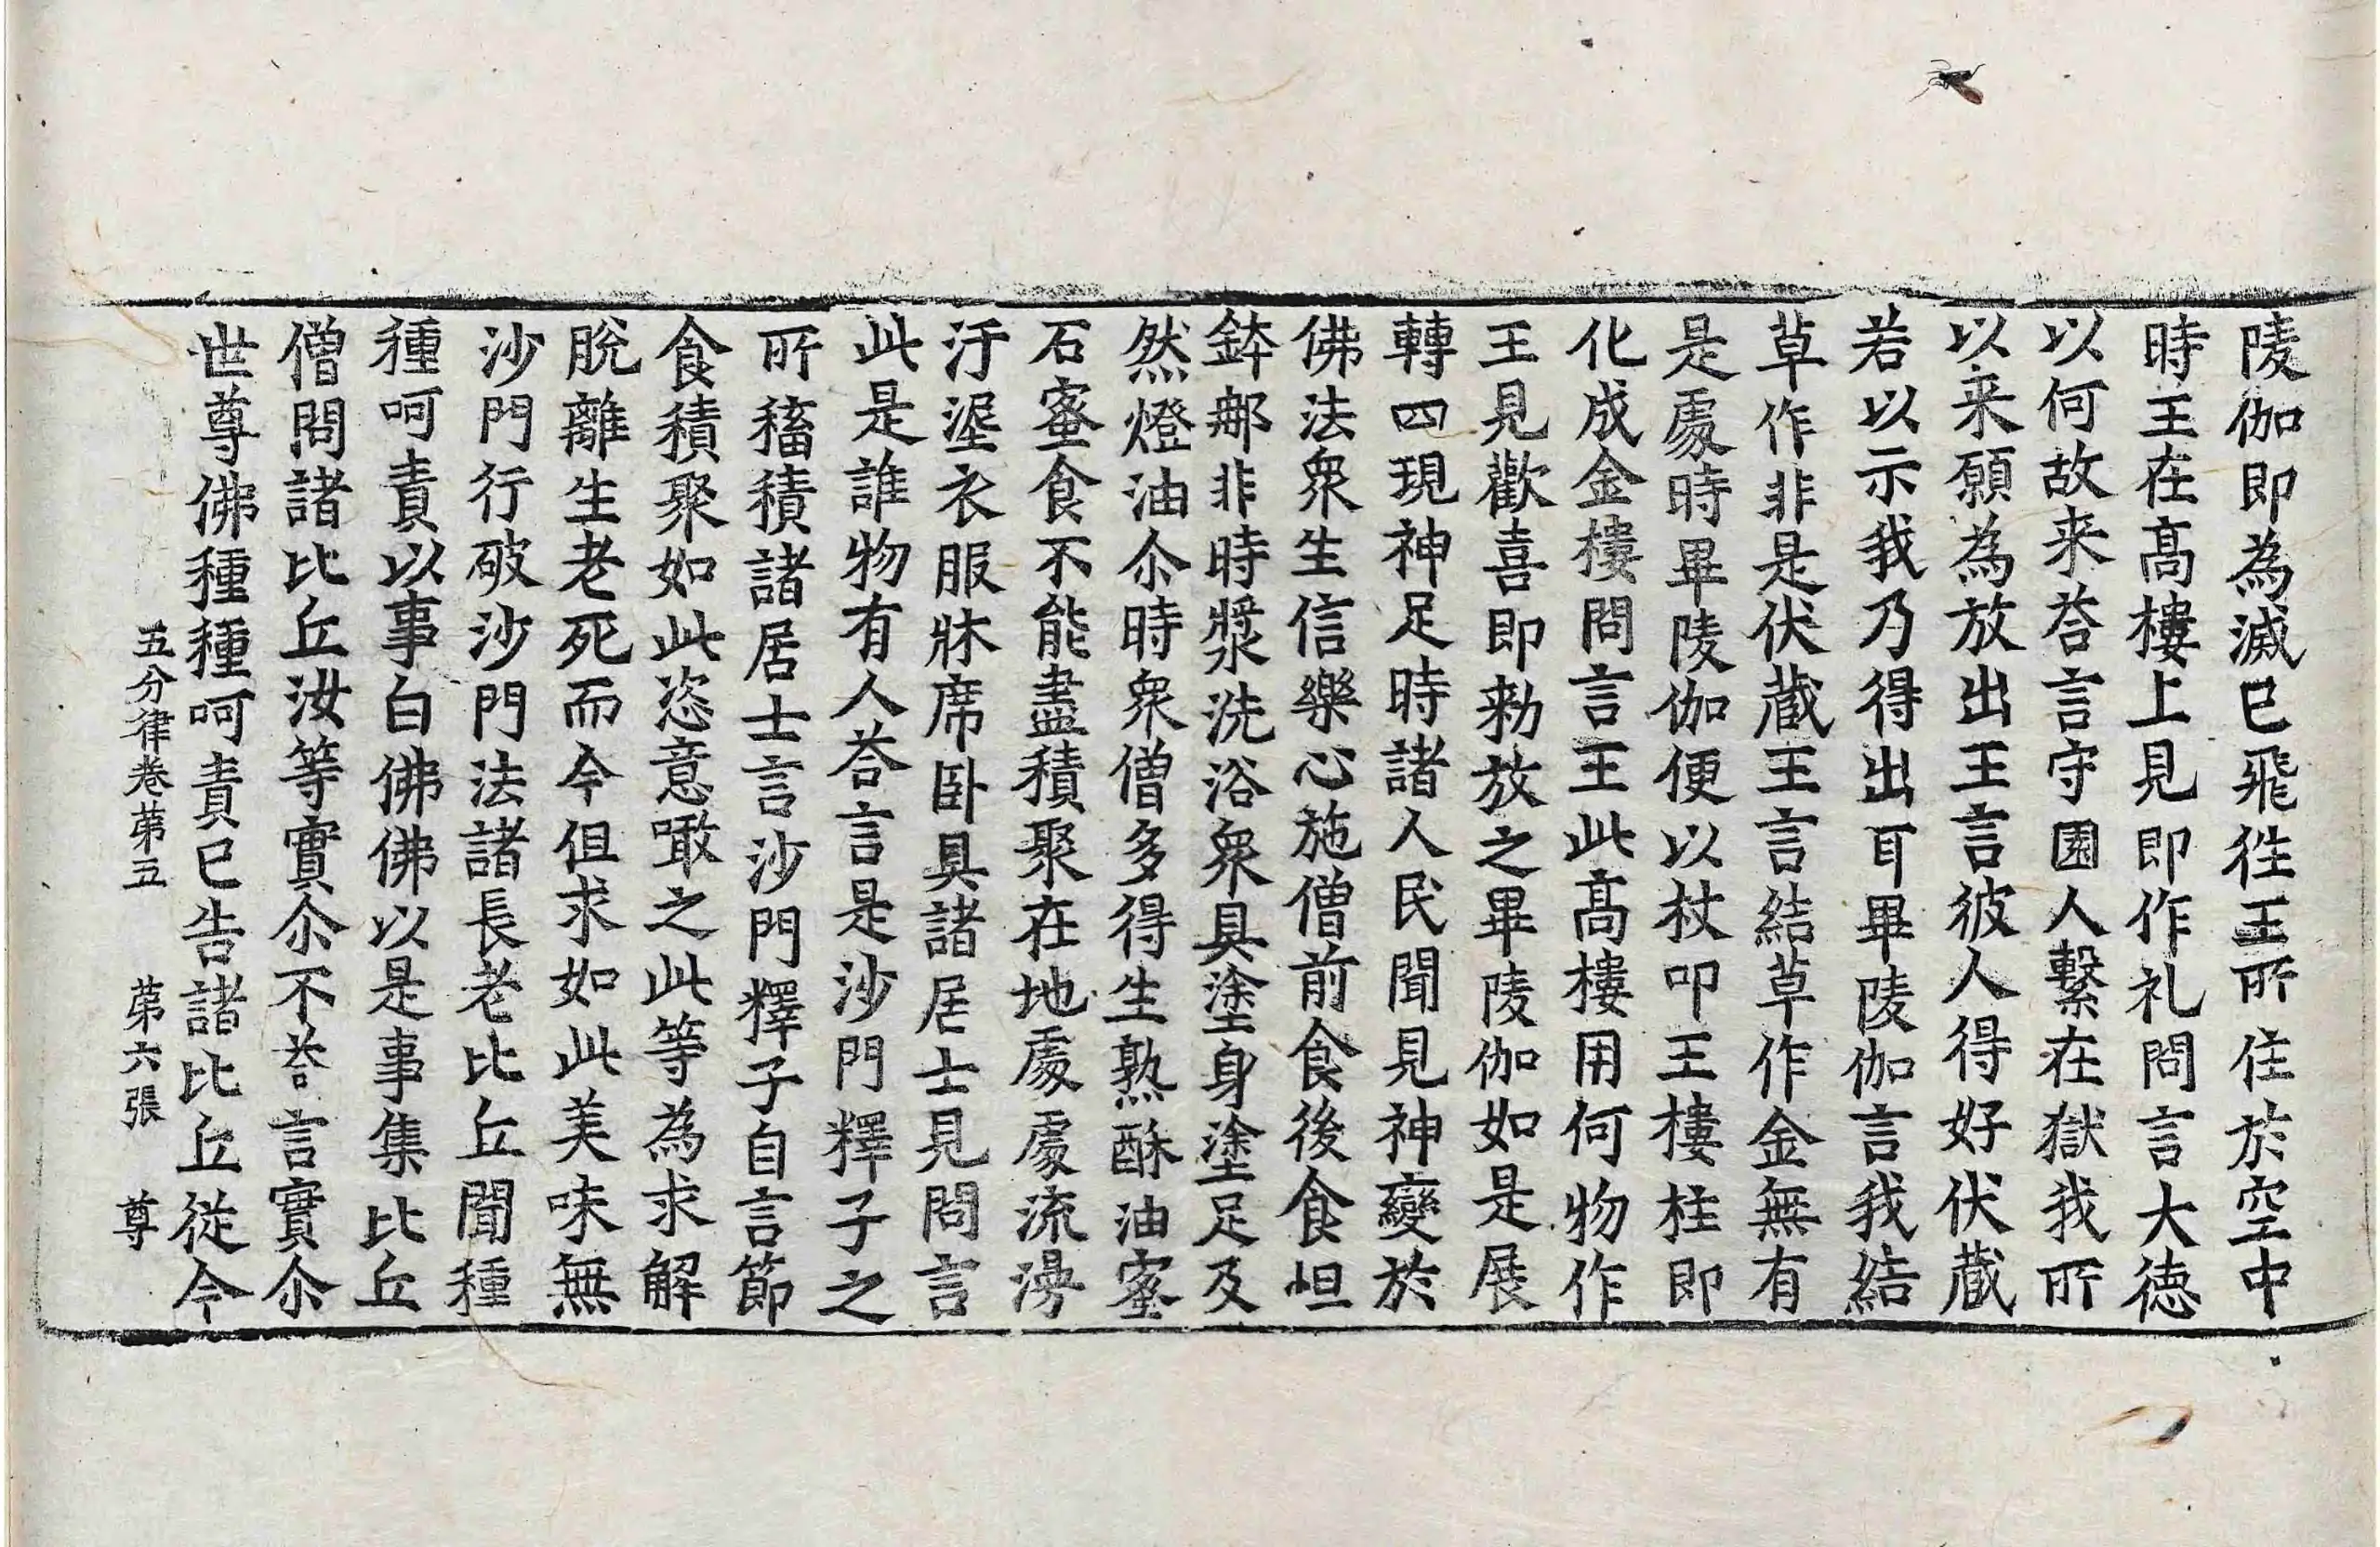 陵伽即為滅已飛徃王所住於空中
時王在髙樓上見即作礼問言大徳
以何故来荅言守園人繋在獄我所
以来願為放出王言彼人得好伏蔵
若以示我乃得出耳畢陵伽言我結
草作非是伏蔵王言結草作金無有
是處時畢陵伽便以杖叩王樓柱即
化成金樓問言王此髙樓用何物作
王見歡喜即勑放之畢陵伽如是展
轉四現神足時諸人民聞見神變於
佛法衆生信樂心施僧前食後食怛
鉢郍非時漿洗浴衆具塗身塗足及
然燈油尒時衆僧多得生熟酥油蜜
石蜜食不能盡積聚在地處處流漫
汙埿衣服牀席卧具諸居士見問言
此是誰物有人荅言是沙門釋子之
所稸積諸居士言沙門釋子自言節
食積聚如此恣意噉之此等為求解
脫離生老死而今但求如此美味無
沙門行破沙門法諸長老比丘聞種
種呵責以事白佛佛以是事集比丘
僧問諸比丘汝等實尒不荅言實尒
世尊佛種種呵責已告諸比丘從今
五分律卷苐五 苐六張 尊